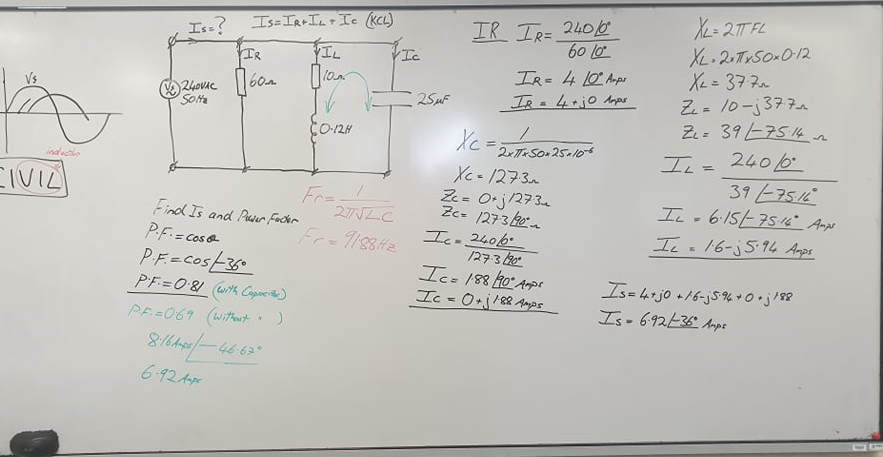 Is=? Is=IR+IL+Ic (KCL)
Vs
inductor
CIVIL
Vs 240VAC
50Hz
IR
60Ω
IL
10Ω
0.12H
Ic
25μF
Find Is and Power Factor
P.F.=cosθ
P.F.=cos∠-36°
P.F.=0.81 (with Capacitor)
P.F.=0.69 (without " )
8.16Amps∠-46.67°
6.92Amps
Fr=1/2π√LC
Fr=91.88Hz
IR IR=240∠0°/60∠0°
IR=4∠0° Amps
IR=4+j0 Amps
Xc=1/2×π×50×25×10⁻⁶
Xc=127.3Ω
Zc=0+j127.3Ω
Zc=127.3∠90°Ω
Ic=240∠0°/127.3∠90°
Ic=1.88∠90° Amps
Ic=0+j1.88 Amps
XL=2πFL
XL=2×π×50×0.12
XL=37.7Ω
ZL=10-j37.7Ω
ZL=39∠-75.14°Ω
IL=240∠0°/39∠-75.14°
IL=6.15∠-75.14° Amps
IL=1.6-j5.94 Amps
Is=4+j0+1.6-j5.94+0+j1.88
Is=6.92∠-36° Amps